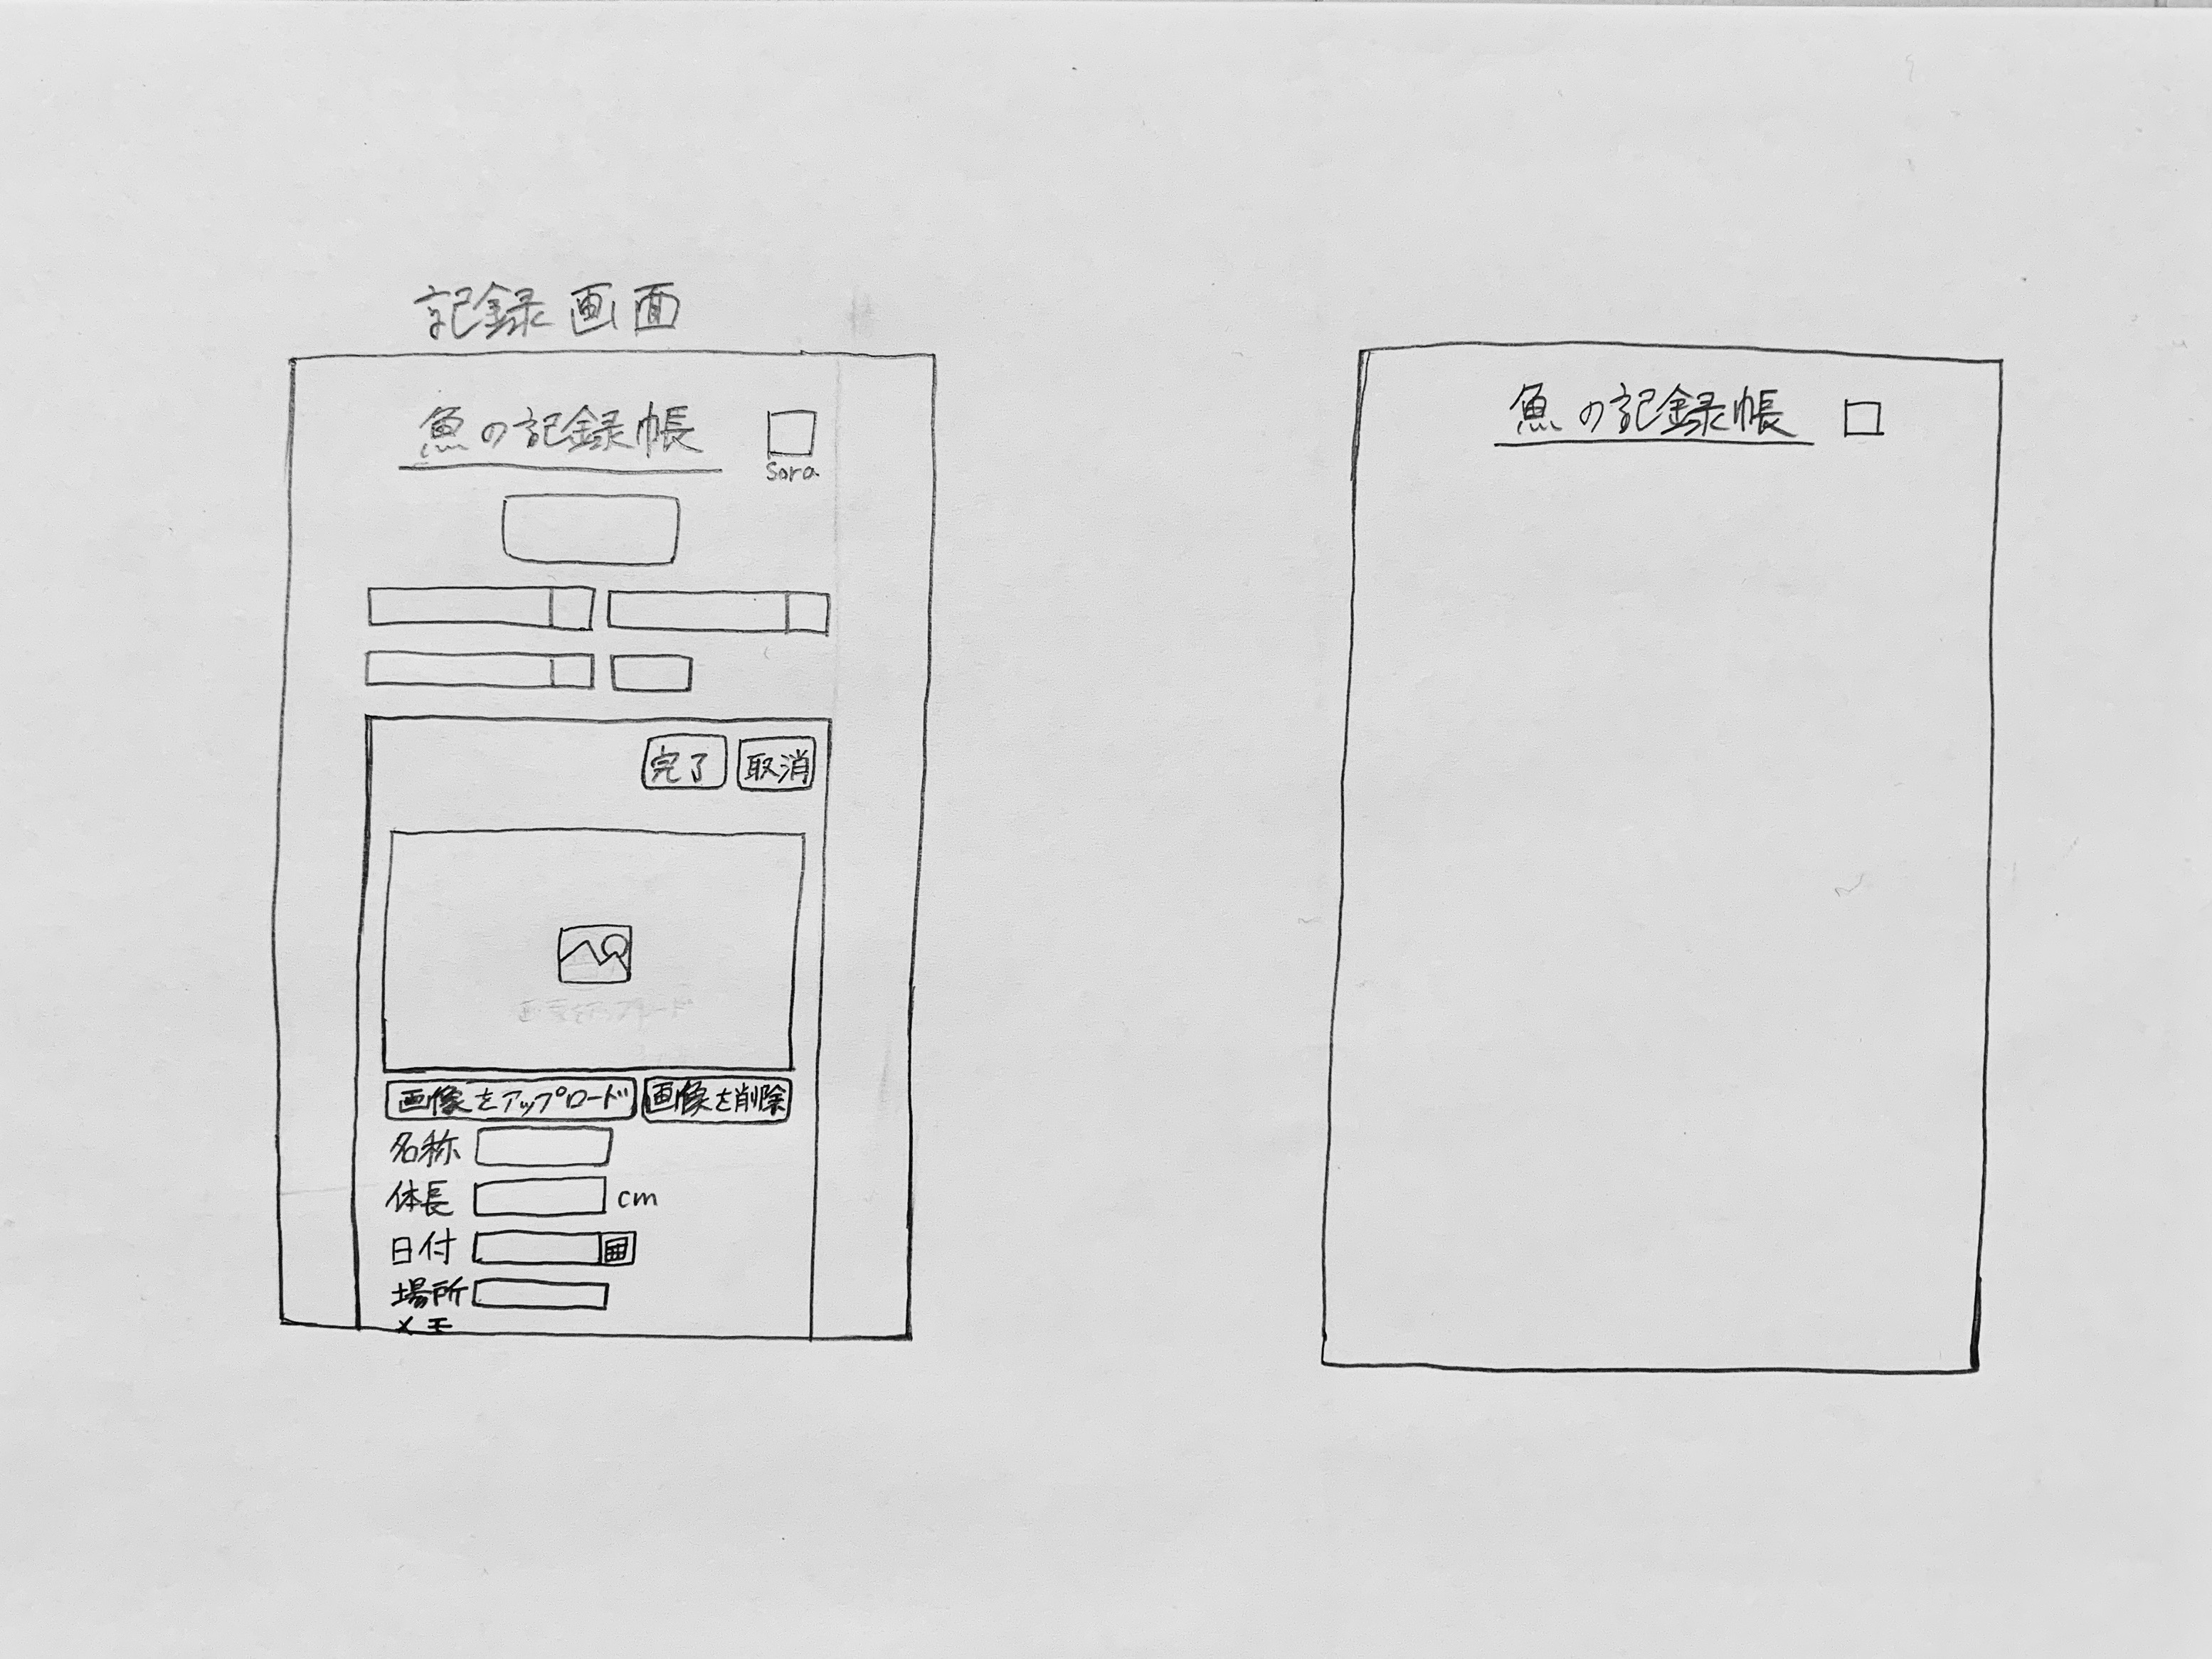 記録画面
魚の記録帳
Sora
完了 取消
画像をアップロード 画像を削除
名称
体長 cm
日付
場所
メモ
魚の記録帳